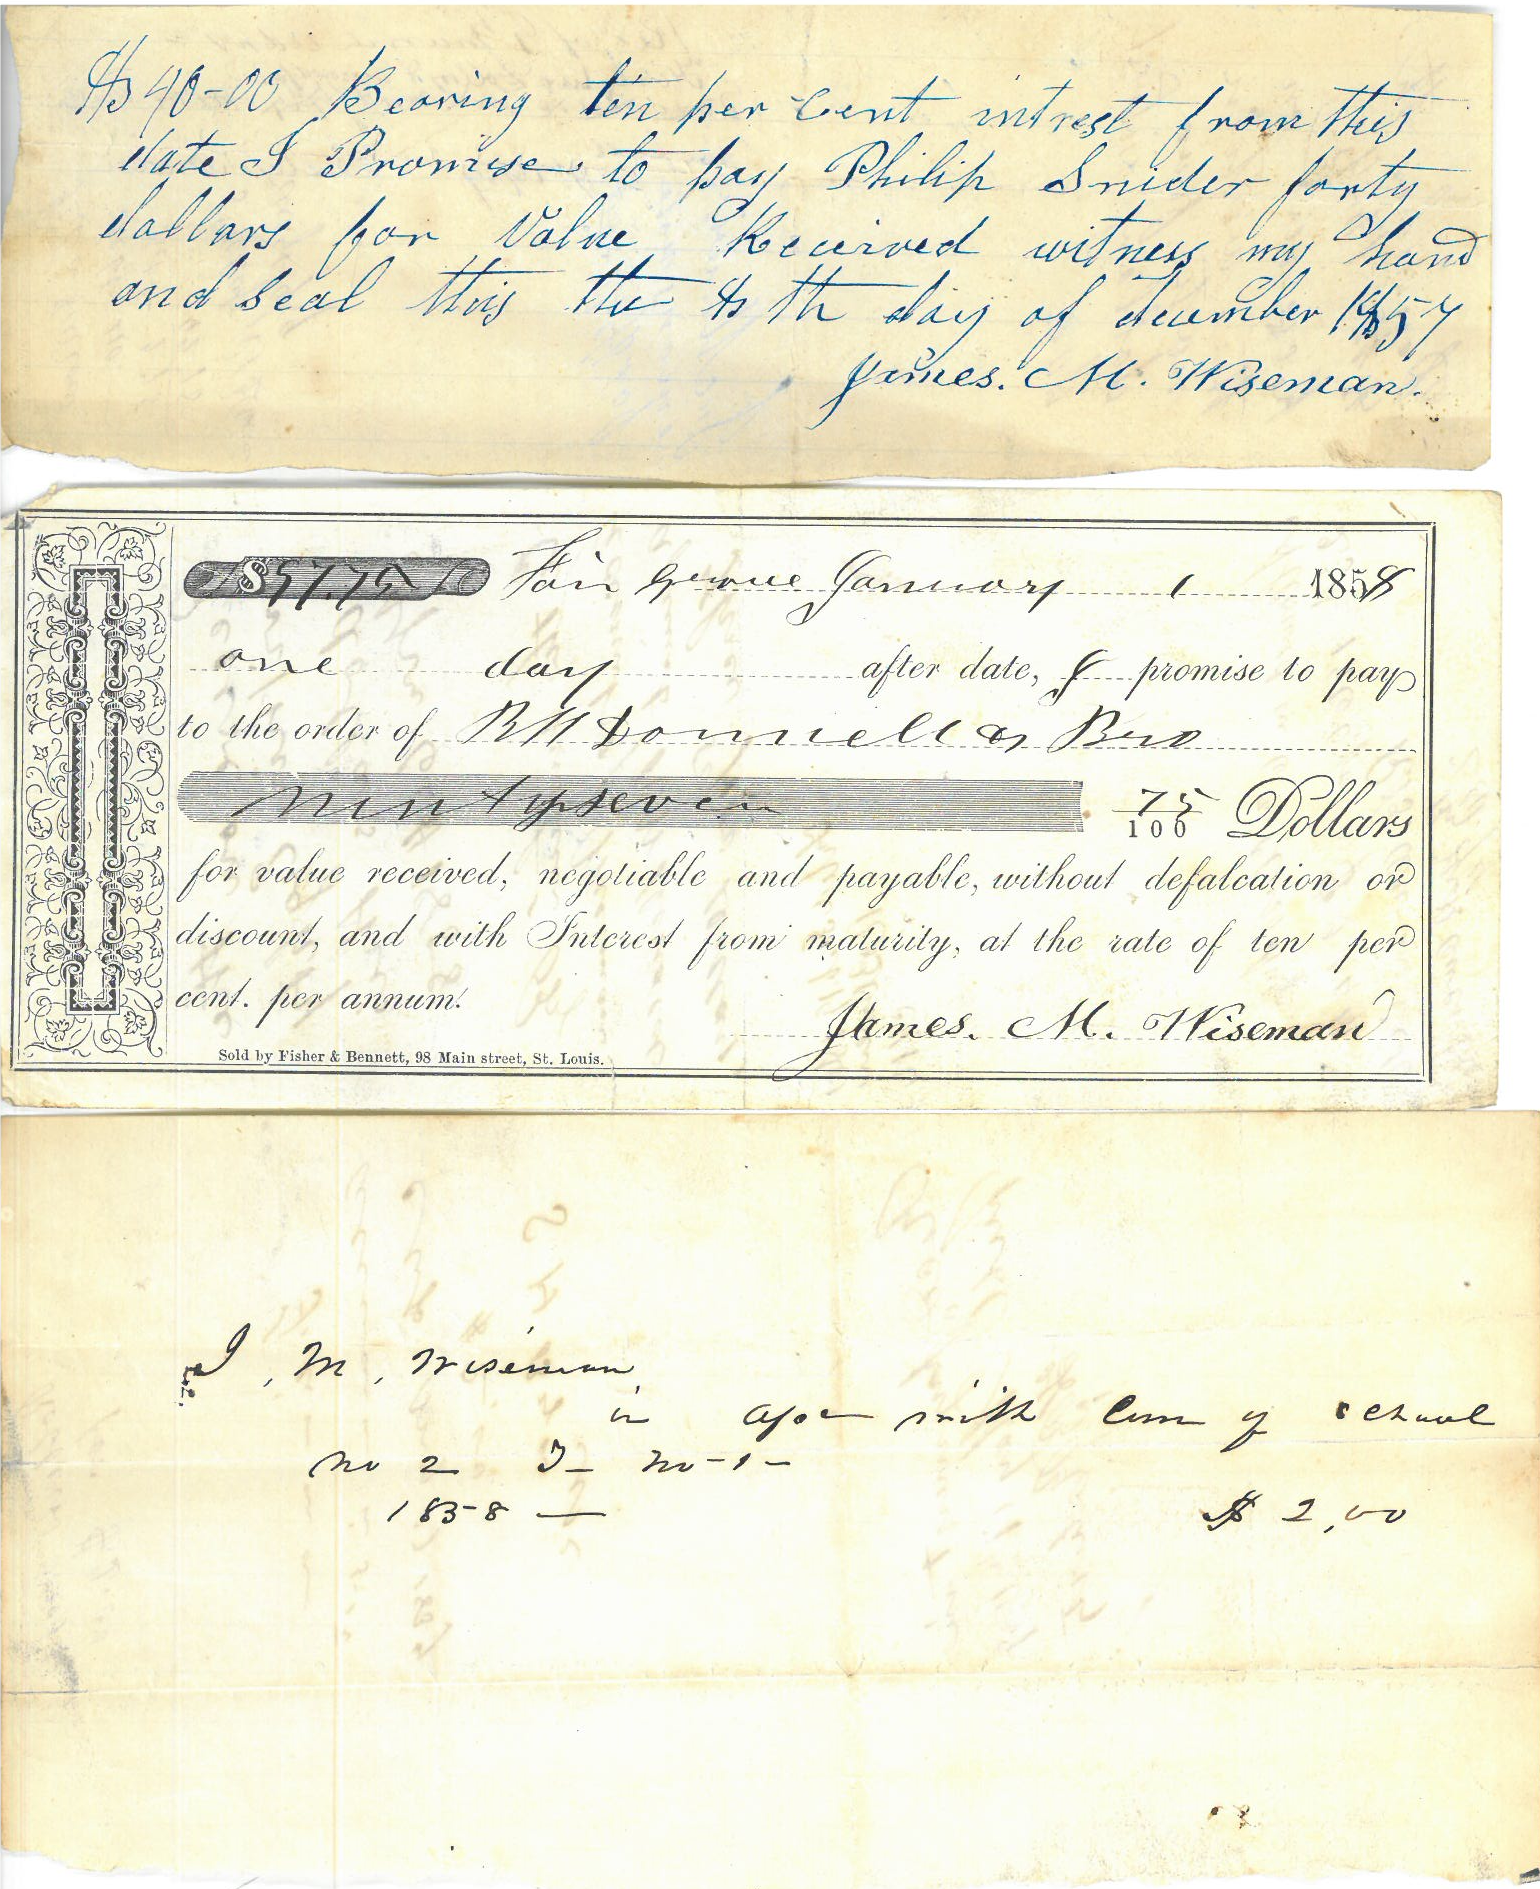 $40-00 Bearing ten per cent intrest from this
date I Promise to pay Philip Snider forty
dollars for Value Received witness my hand
and seal this the th day of december 1857
James. M. Wiseman.
$97.75 Fair January 1 1858
one day after date, I promise to pay
to the order of Donnell & Bro
ninty seven 75/100 Dollars
for value received, negotiable and payable, without defalcation or
discount, and with Interest from maturity, at the rate of ten per
cent. per annum.
James. M. Wiseman
Sold by Fisher & Bennett, 98 Main street, St. Louis.
J, M, Wiseman
in with of school
no 2 T- no-1-
1858 — $ 2,00